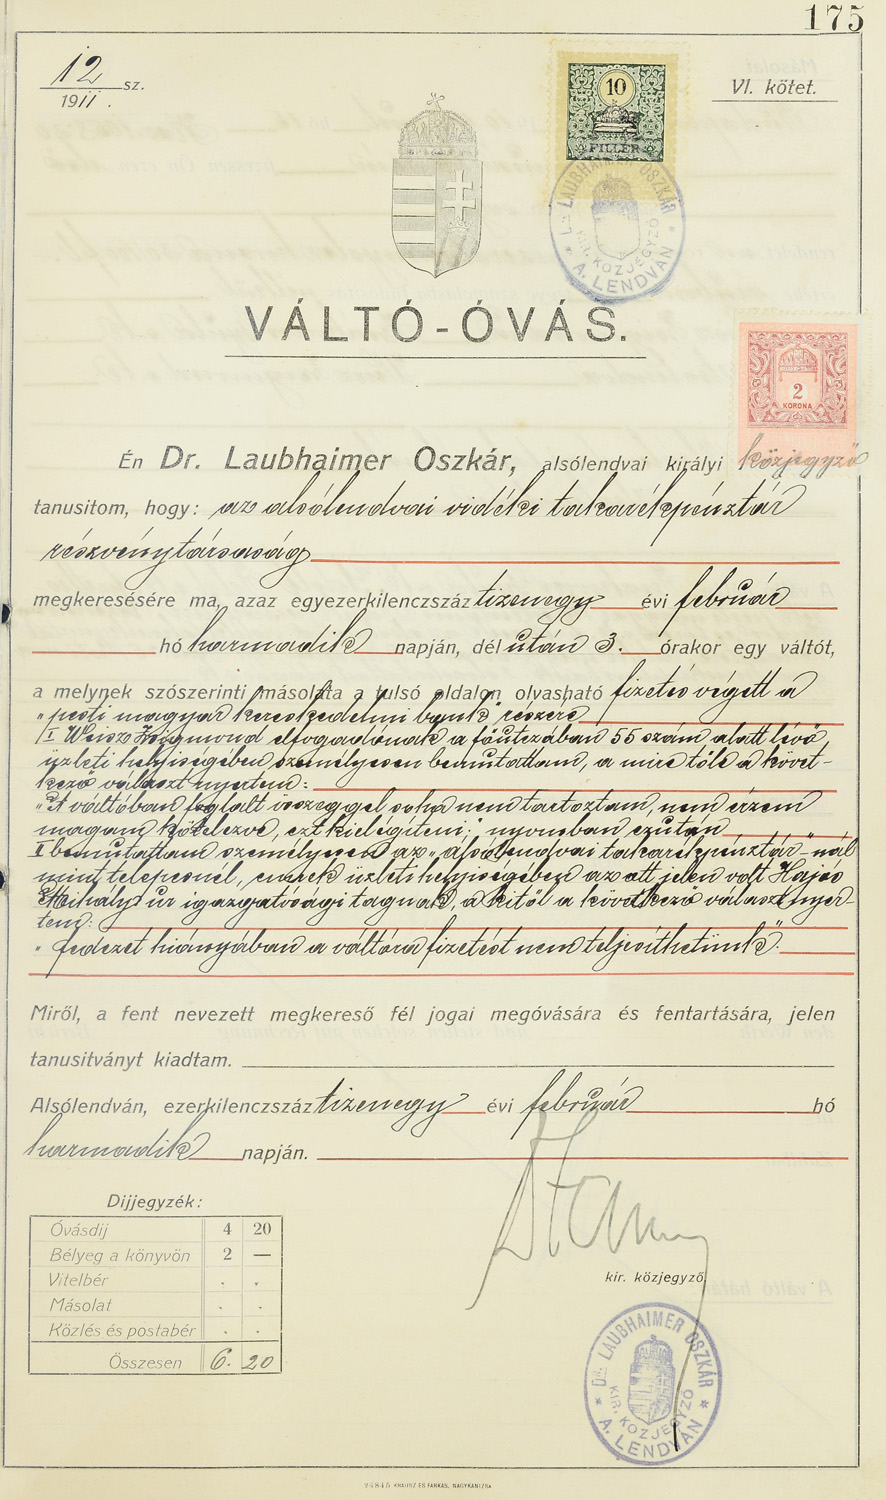 175
12 sz.
1911.
VI. kötet.
10
FILLÉR
Dr. LAUBHAIMER OSZKÁR
KIR. KÖZJEGYZŐ
* A. LENDVÁN *
VÁLTÓ-ÓVÁS.
2
KORONA
Én Dr. Laubhaimer Oszkár, alsólendvai királyi közjegyző
tanusitom, hogy: az alsólendvai vidéki takarékpénztár
részvénytársaság
megkeresésére ma, azaz egyezerkilenczszáz tizenegy évi február
hó harmadik napján, dél után 3. órakor egy váltót,
a melynek szószerinti másolata a tulsó oldalon olvasható fizetés végett a
"pesti magyar kereskedelmi bank" részére
I Weisz Zsigmond elfogadónak a főutczában 55 szám alatt lévő
üzleti helyiségében személyesen bemutattam, a mire tőle a követ-
kező választ nyertem:
"A váltóban foglalt összeggel soha nem tartoztam, nem érzem
magam kötelezve, ezt kielégíteni;" nyomban ezután
II bemutattam személyesen az "alsólendvai takarékpénztár"-nál
mint telepesnél, ennek üzleti helyiségében az ott jelen volt Hajós
Mihály úr igazgatósági tagnak, a kitől a következő választ nyer-
tem:
"fedezet hiányában a váltóra fizetést nem teljesíthetünk".
Miről, a fent nevezett megkereső fél jogai megóvására és fentartására, jelen
tanusitványt kiadtam.
Alsólendván, ezerkilenczszáz tizenegy évi február hó
harmadik napján.
Dijjegyzék:
Óvásdij 4 20
Bélyeg a könyvön 2 —
Vitelbér . .
Másolat . .
Közlés és postabér . .
Összesen 6. 20
kir. közjegyző.
Dr. LAUBHAIMER OSZKÁR
KIR. KÖZJEGYZŐ
* A. LENDVÁN *
KRAUSZ ÉS FARKAS, NAGYKANIZSA